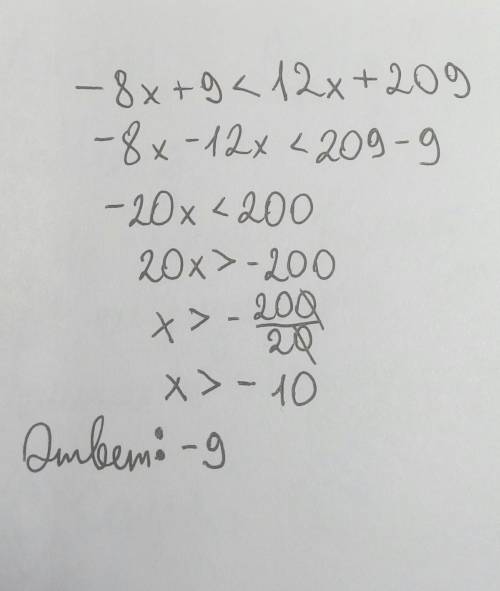 -8x+9<12x+209
-8x-12x<209-9
-20x<200
20x>-200
x>-200/20
x>-10
Ответ: -9